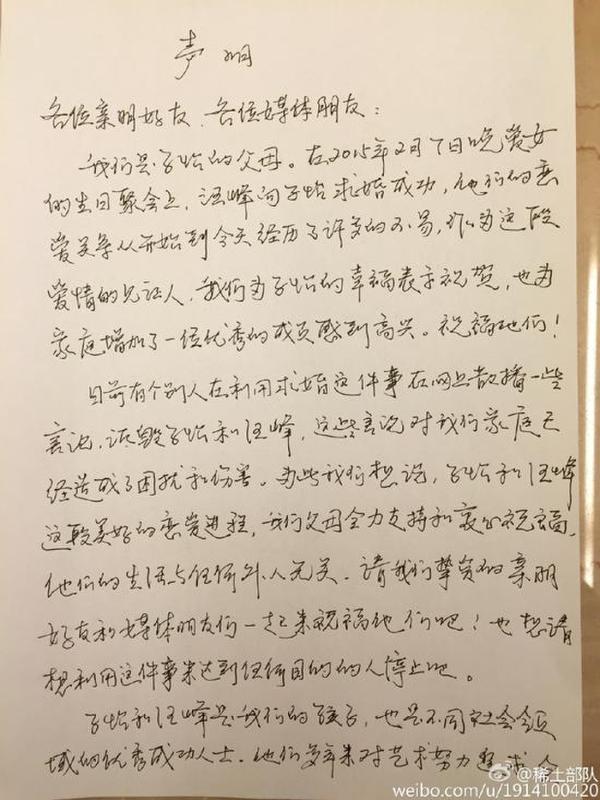 声明
各位亲朋好友、各位媒体朋友：
我们是子怡的父母。在2015年2月7日晚爱女
的生日聚会上，汪峰向子怡求婚成功，他们的恋
爱关系从开始到今天经历了许多的不易，作为这段
爱情的见证人，我们为子怡的幸福表示祝贺，也为
家庭增加了一位优秀的成员感到高兴。祝福他们！
目前有个别人在利用求婚这件事在网上散播一些
言论，诋毁子怡和汪峰，这些言论对我们家庭已
经造成了困扰和伤害。为此我们想说，子怡和汪峰
这段美好的恋爱进程，我们父母全力支持和衷心祝福，
他们的生活与任何外人无关。请我们挚爱的亲朋
好友和媒体朋友们一起来祝福他们吧！也想请
想利用这件事来达到任何目的的人停止吧。
子怡和汪峰是我们的孩子，也是不同社会领
域的优秀成功人士。他们多年来对艺术努力追求、
@稀土部队
weibo.com/u/1914100420